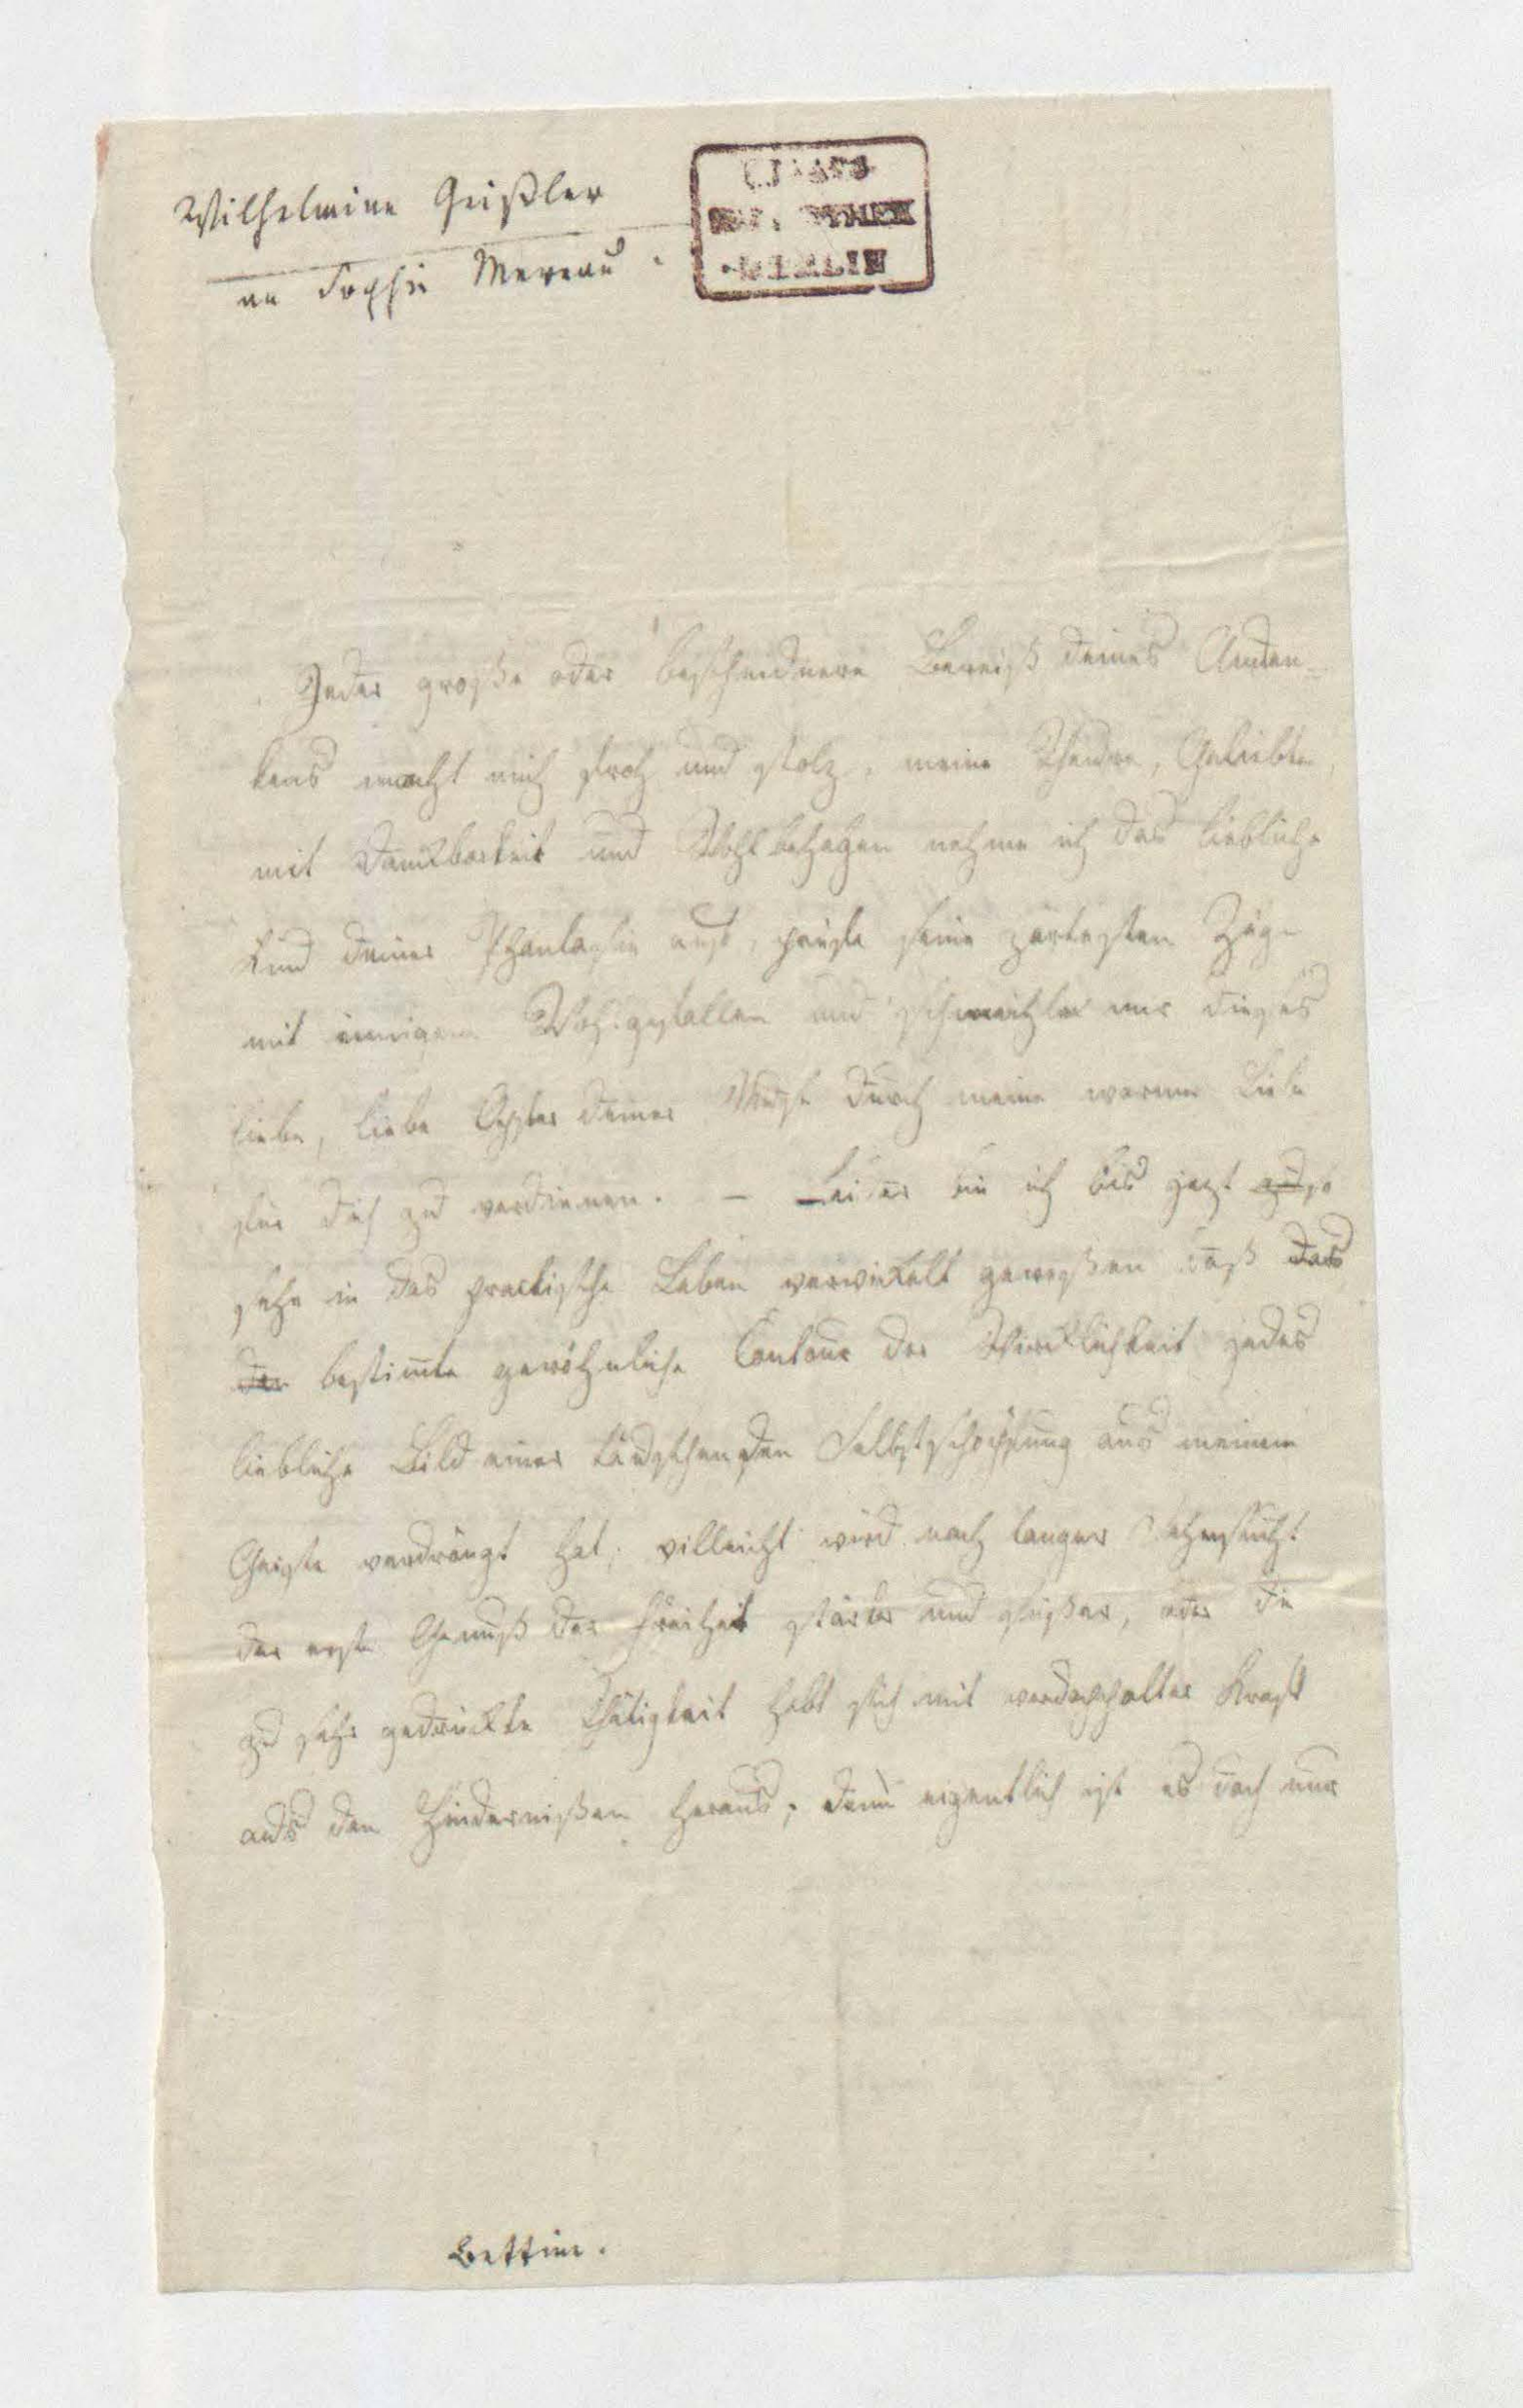 Wilhelmine Geißler
an Sophie Mereau.
BERLIN
Jeder große oder bescheidnere Beweiß deines Anden=
kens macht mich froh und stolz, meine Theure, Geliebte,
mit Dankbarkeit und Wohlbehagen nehme ich das liebliche
Kind deiner Phantasie auf, prüfe seine zartesten Züge
mit innigem Wohlgefallen und schmeichle mir dieses
liebe, liebe Opfer deiner Muse durch meine warme Liebe
für dich zu verdienen. – Leider bin ich bis jezt zu so
sehr in das practische Leben verwickelt geweßen daß das
der bestimte gewöhnliche Contour der Wirklichkeit jedes
liebliche Bild einer täuschenden Selbstschöpfung aus meinem
Geiste verdrängt hat; villeicht wird nach langer Sehnsucht
der erste Genuß der Freiheit stärker und süßer, oder die
zu sehr gedrückte Thätigkeit hebt sich mit verdoppelter Kraft
aus den Hindernißen heraus; denn eigentlich ist es doch nur
Bettine.